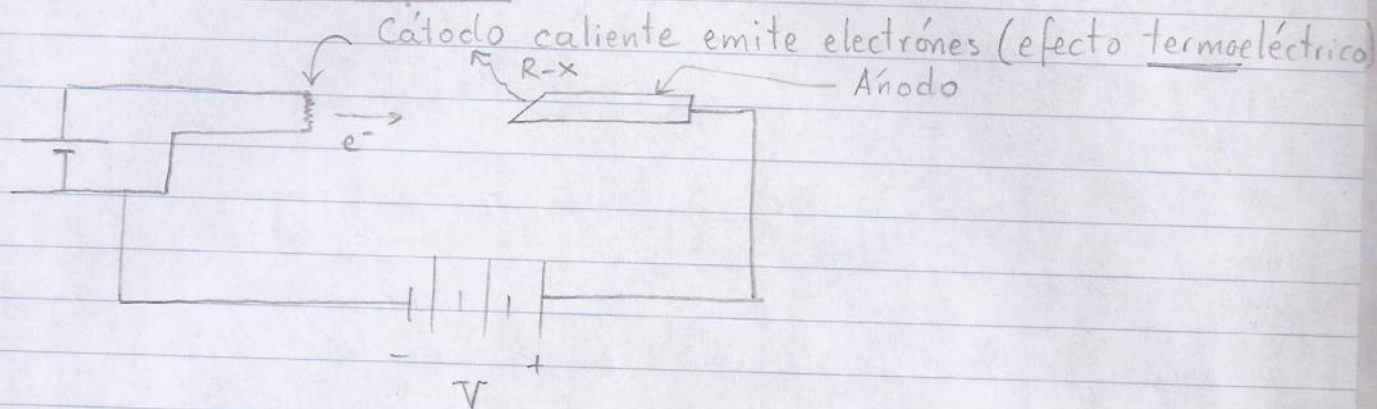 Cátodo caliente emite electrónes (efecto termoeléctrico)
R-X
Ánodo
e-
- +
V